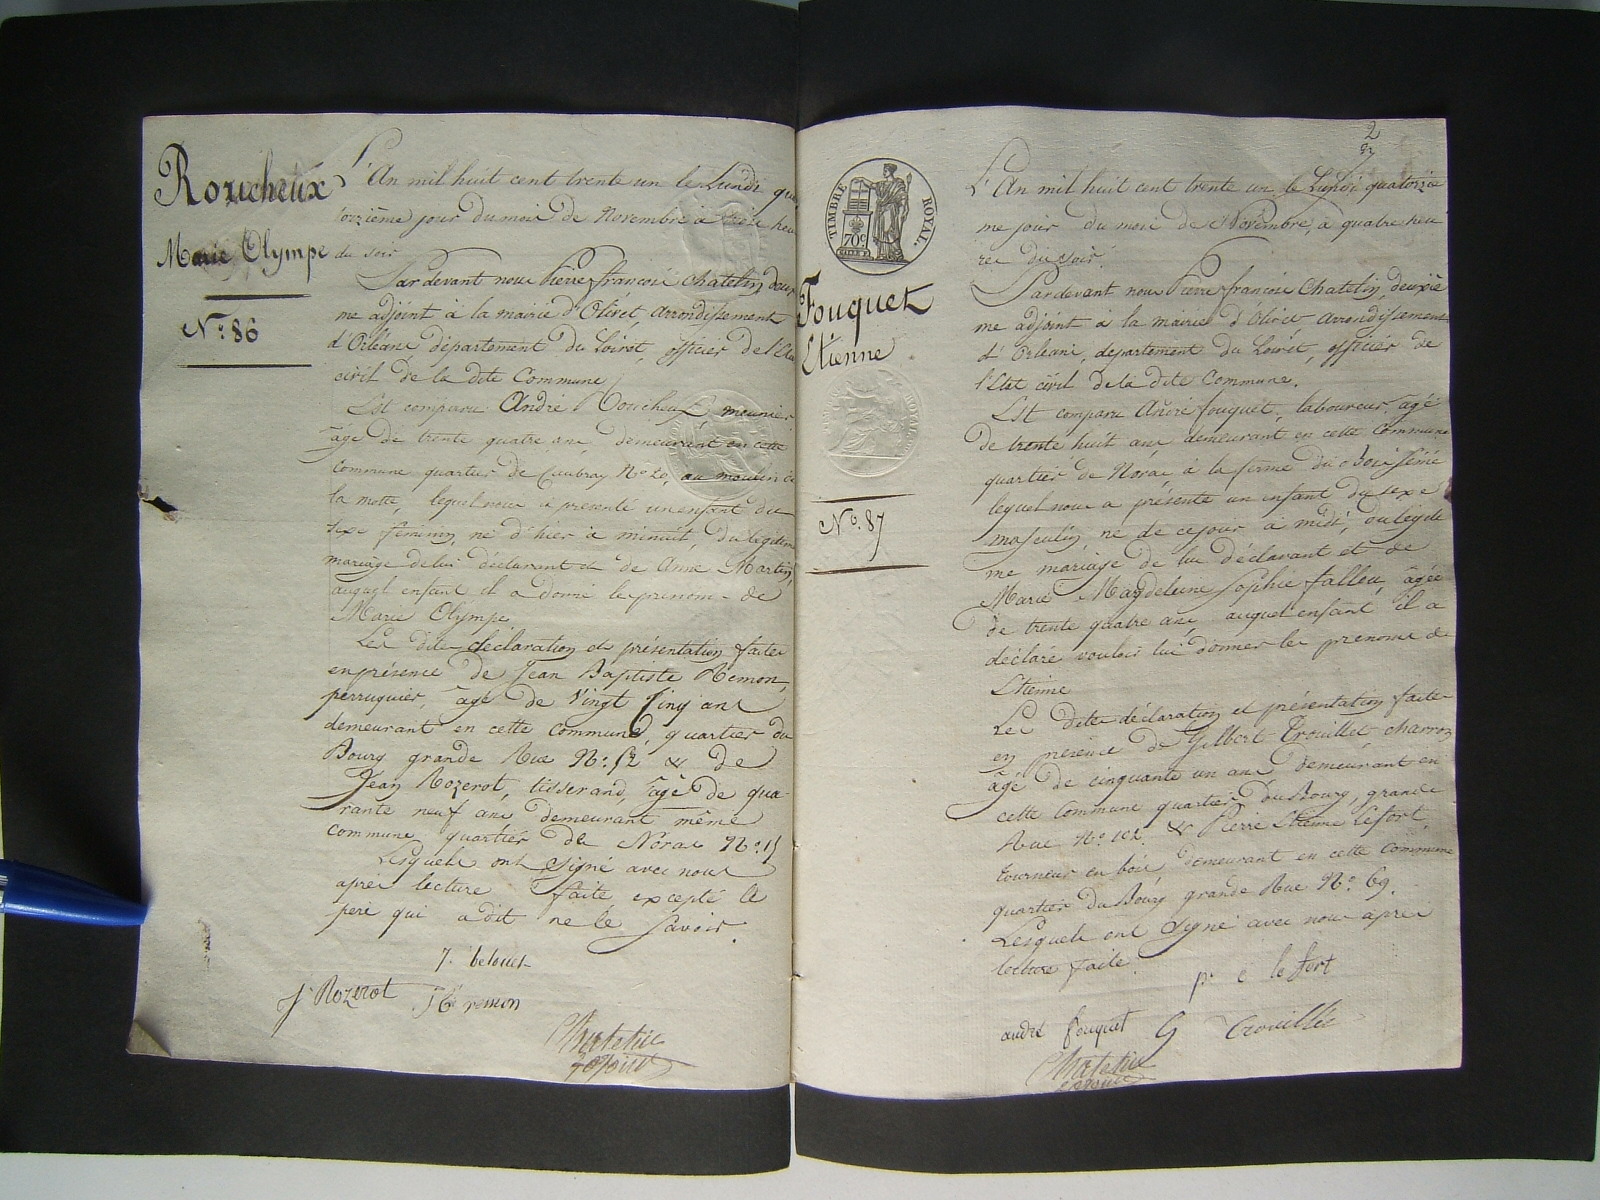 Roucheux
Marie Olympe
N.º 86
L'An mil huit cent trente un le Lundi qua
torzième jour du mois de Novembre à trois heu
du soir
Pardevant nous Pierre françois Chatelin deux
me adjoint à la mairie d'Olivet, arrondissement
d'Orléans département du Loiret, officier de l'Eta
civil de la dite Commune
Est comparu André Roucheux meunier
âgé de trente quatre ans demeurant en cette
commune quartier de Caubray Nº 20, au moulin de
la motte, lequel nous a présenté un enfant du
sexe féminin, né d'hier à minuit, du légitime
mariage de lui déclarant et de Anne Martin,
auquel enfant il a donné les prénoms de
Marie Olympe
Les dites déclaration et présentation faites
en présence de Jean Baptiste Rémon,
perruquier, âgé de Vingt Cinq ans
demeurant en cette commune, quartier du
Bourg grande Rue Nº. 52 & de
Jean Rozerot, tisserand, âgé de qua-
rante neuf ans demeurant même
commune, quartier de Norac Nº. 15
Lesquels ont signé avec nous
après lecture faite excepté le
père qui a dit ne le savoir.
J Rozerot
J B remon
Chatelin
adjoint
2
TIMBRE ROYAL.
70c
Fouquet
Etienne
Nº. 87
L'An mil huit cent trente un le Lundi quatorziè
me jour du mois de Novembre, à quatre heu
res du soir.
Pardevant nous Pierre françois Chatelin, deuxiè
me adjoint à la mairie d'Olivet arrondissement
d'Orléans, département du Loiret, officier de
l'Etat civil de la dite Commune.
Est comparu André fouquet, laboureur, âgé
de trente huit ans demeurant en cette Commune
quartier de Norac, à la ferme du
lequel nous a présenté un enfant du sexe
masculin, né de ce jour à midi, du légiti
me mariage de lui déclarant et de
Marie Magdeleine Sophie falleu, âgée
de trente quatre ans, auquel enfant il a
déclaré vouloir lui donner les prénoms de
Etienne
Les dites déclaration et présentation faites
en présence de Gilbert Trouillet charron
âgé de cinquante un ans demeurant en
cette Commune quartier du Bourg, grande
Rue Nº. 102 & Pierre Etienne lefort,
tourneur en bois, demeurant en cette Commune
quartier du Bourg grande Rue Nº. 69.
Lesquels ont Signé avec nous après
lecture faite.
pr e le fort
andré fouquet G Trouillet
Chatelin
adjoint